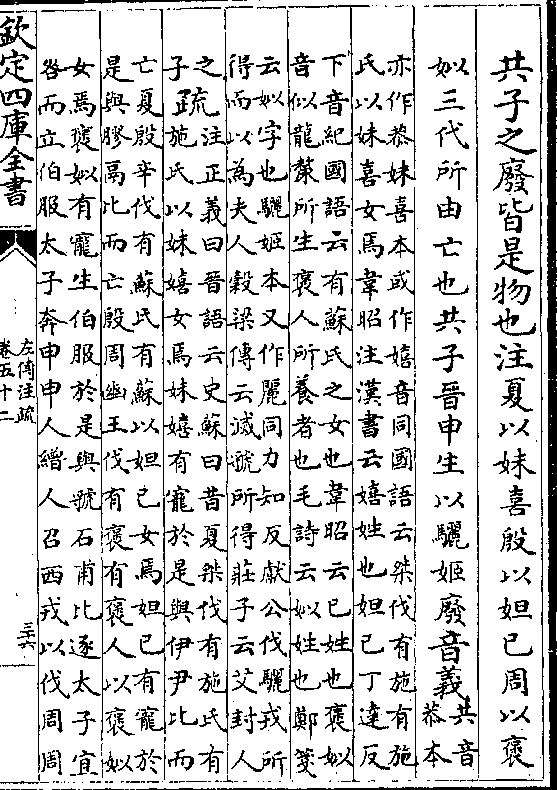 共子之廢皆是物也注夏以妹喜殷以妲已周以褒
姒三代所由亡也共子晉申生以驪姬廢音義共音
恭本
亦作恭妹喜本或作嬉音同國語云桀伐有施有施
氏以妹喜女焉韋昭注漢書云嬉姓也妲已丁達反
下音紀國語云有蘇氏之女也韋昭云已姓也褒姒
音似龍漦所生褒人所養者也毛詩云姒姓也鄭箋
云姒字也驪姬本又作麗同力知反獻公伐驪戎所
得而以為夫人穀梁傳云滅虢所得莊子云艾封人
之
子
疏注正義曰晉語云史蘇曰昔夏桀伐有施氏有
施氏以妹嬉女焉妹嬉有寵於是與伊尹比而
亡夏殷辛伐有蘇氏有蘇以妲已女焉妲已有寵於
是與膠鬲比而亡殷周幽王伐有褒有褒人以褒姒
女焉褒姒有寵生伯服於是與虢石甫比逐太子宜
咎而立伯服太子奔申申人繒人召西戎以伐周周
欽定四庫全書
左傳注疏
卷五十二
三十六